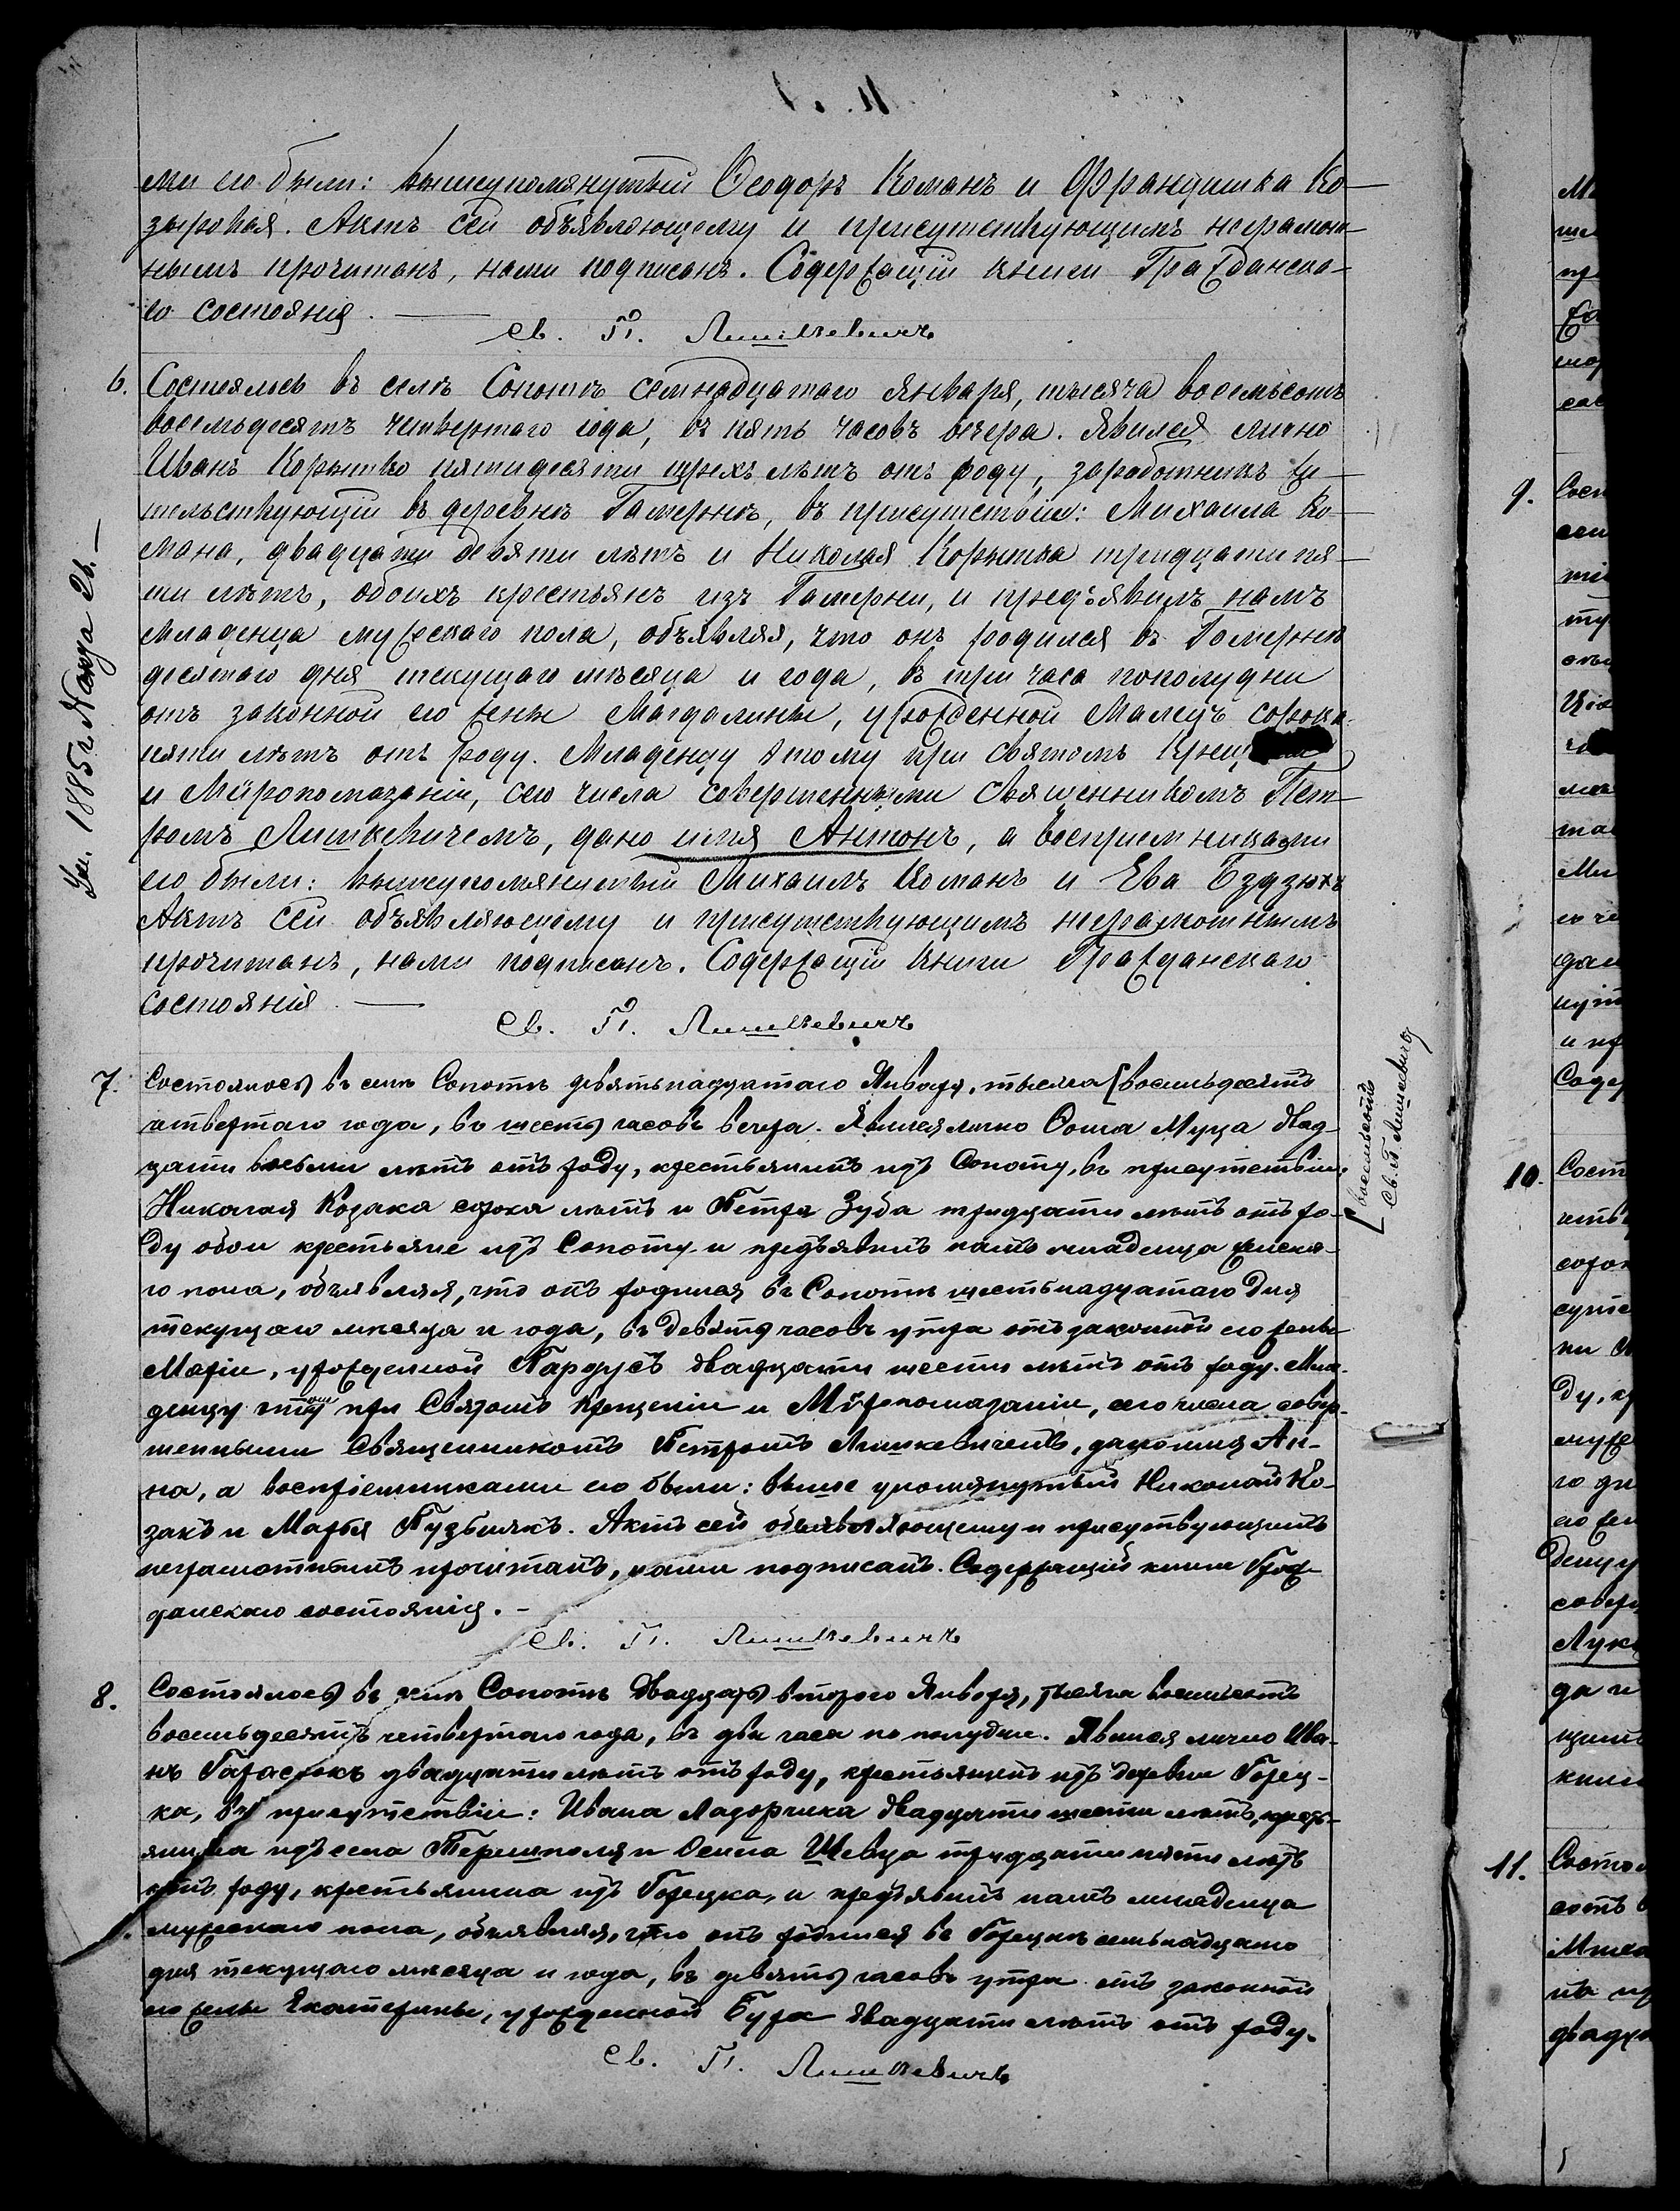 ми его были: вышеупомянутый Ѳеодоръ Команъ и Францишка Ко-
зыровая. Актъ сей объявляющему и присутствующимъ неграмот-
нымъ прочитанъ, нами подписанъ. Содержащій книги Гражданска-
го состоянія.
Св. П. Лишкевичъ
6. Состоялось въ селѣ Сопотѣ семнадцатаго Января, тысяча восемьсотъ
восемьдесятъ четвертаго года, въ пять часовъ вечера. Явился лично
Иванъ Корытко пятидесяти трехъ лѣтъ отъ роду, заработникъ жи-
тельствующій въ деревнѣ Гамернѣ, въ присутствіи: Михаила Ко-
мана, двадцати девяти лѣтъ и Николая Корытка тридцати пя-
ти лѣтъ, обоихъ крестьянъ изъ Гамерни, и предъявилъ намъ
младенца мужескаго пола, объявляя, что онъ родился въ Гамернѣ
десятаго дня текущаго мѣсяца и года, въ три часа пополудни
отъ законной его жены Магдалины, урожденной Малецъ сорока
пяти лѣтъ отъ роду. Младенцу этому при святомъ Крещ
и Мѵропомазаніи, сего числа совершенными Священникомъ Пет-
ромъ Лишкевичемъ, дано имя Антонъ, а воспріемниками
его были: вышеупомянутый Михаилъ Команъ и Ева Бздзюхъ
Актъ сей объявляющему и присутствующимъ неграмотнымъ
прочитанъ, нами подписанъ. Содержащій книги Гражданскаго
состоянія.
Св. П. Лишкевичъ
Ум. 1885 г. Марта 26.
7. Состоялось въ селѣ Сопотѣ девятьнадцатаго Января, тысяча [восемьдесятъ
четвертаго года, въ шесть часовъ вечера. Явился лично Сома Муха двад-
цати восьми лѣтъ отъ роду, крестьянинъ изъ Сопоту, въ присутствіи
Николая Козака сорока лѣтъ и Петра Зуба тридцати лѣтъ отъ ро-
ду обои крестьяне изъ Сопоту и предъявилъ намъ младенца женска-
го пола, объявляя, что онъ родился въ Сопотѣ шестьнадцатаго дня
текущаго мѣсяца и года, въ девять часовъ утра отъ законной его жены
Маріи, урожденной Пардусъ двадцати шести лѣтъ отъ роду. Мла-
денцу этому при Святомъ Крещеніи и Мѵропомазаніи, сего числа совер-
шенными Священникомъ Петромъ Лишкевичемъ, дано имя Ан-
на, а воспріемниками его были: выше упомянутый Николай Ко-
закъ и Марья Пузьнякъ. Актъ сей объявляющему и присутвующимъ
неграмотнымъ прочитанъ, нами подписанъ. Содержащій книги Граж-
данскаго состоянія.
Св. П. Лишкевичъ
[восемьсотъ
Св. П. Лишкевичъ
8. Состоялось въ селѣ Сопотѣ двадцать втораго Января, тысяча восемьсотъ
восемьдесятъ четвертаго года, въ два часа по полудни. Явился лично Ива-
нъ Гарасюкъ двадцати лѣтъ отъ роду, крестьянинъ изъ деревни Горец-
ка, въ присутствіи: Ивана Лазорчика двадцати шести лѣтъ, кресть-
янина изъ села Терешполя и Осипа Шевца тридцати пяти лѣтъ
отъ роду, крестьянина изъ Горецка, и предъявилъ намъ младенца
мужескаго пола, объявляя, что онъ родился въ Горецкѣ семьнадцато
дня текущаго мѣсяца и года, въ девять часовъ утра отъ законной
его жены Екатерины, урожденной Бура двадцати лѣтъ отъ роду.
Св. П. Лишкевичъ
9.
10.
11.